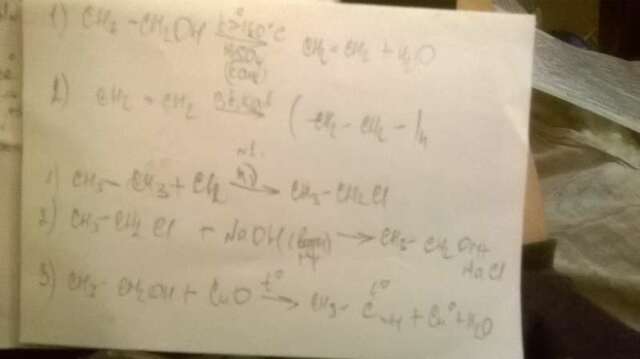 1) CH3 – CH2OH t°>140°C CH2 = CH2 + H2O
H2SO4
(конц)
2) CH2 = CH2 (CH2 – CH2 –)n
1) CH3 – CH3 + Cl2 hν → CH3 – CH2Cl
2) CH3 – CH2Cl + NaOH → CH3 – CH2OH +
NaCl
3) CH3 – CH2OH + CuO t° → CH3 – C + Cu° + H2O